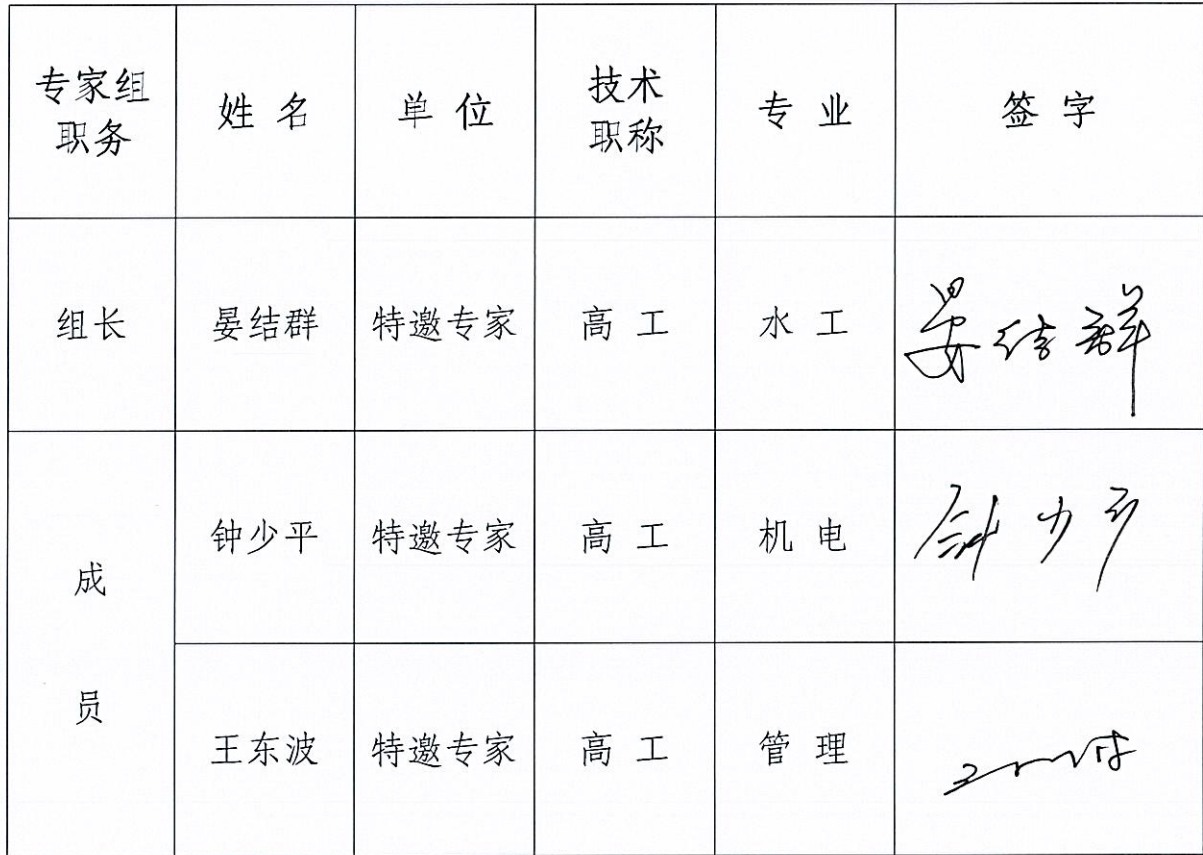 专家组职务 姓名 单位 技术职称 专业 签字
组长 晏结群 特邀专家 高工 水工 晏结群
成员 钟少平 特邀专家 高工 机电 钟少平
王东波 特邀专家 高工 管理